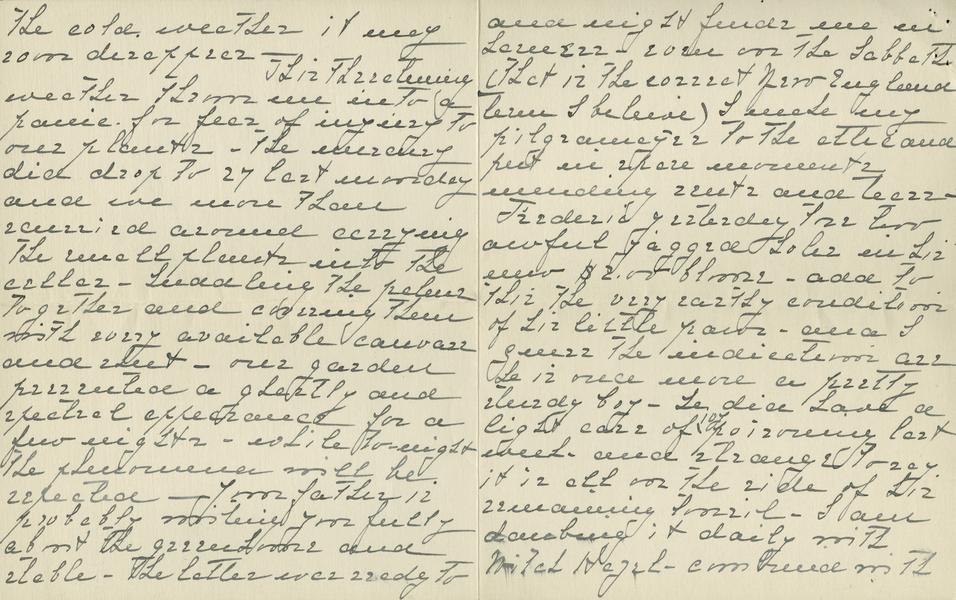 The cold weather it my
room disappear — This threatening
weather throws me into a
panic. for fear of injury to
our plants - the mercury
did drop to 27 last monday
and we more than
scurried around carrying
the small plants into the
cellar - huddling the palms
together and covering them
with every available canvass
and sheet - our garden
presented a ghastly and
spectral appearance for a
few nights - while to-night
the phenomena will be
repeated — Your father is
probably writing you fully
about the greenhouse and
stable - The latter was ready to
and night finds me in
- even on the Sabbath
(That is the correct New England
term I believe) I make my
pilgrimages to the attic and
put in spare moments
mending rents and tears -
Frederic yesterday tore two
awful jagged holes in his
new $2.00 blouse - add to
this the very earthy condition
of his little paws - and I
guess the indications are
he is once more a pretty
sturdy boy - he did have a
light case of ivy poisoning last
week - and strange to say
it is all on the side of his
remaining tonsil - I am
daubing it daily with
Witch Hazel - combined with